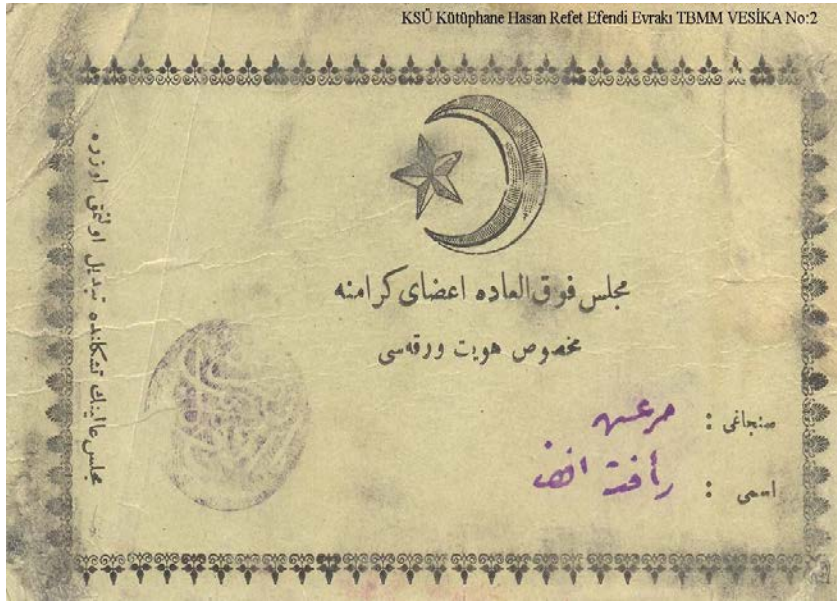 KSÜ Kütüphane Hasan Refet Efendi Evrakı TBMM VESİKA No:2
مجلس فوق العاده اعضای كرامنه
مخصوص هویت ورقه‌سی
سنجاغی : مرعش
اسمی : رأفت افندی
مجلس عالینك تشكلنده تبدیل اولنمق اوزره